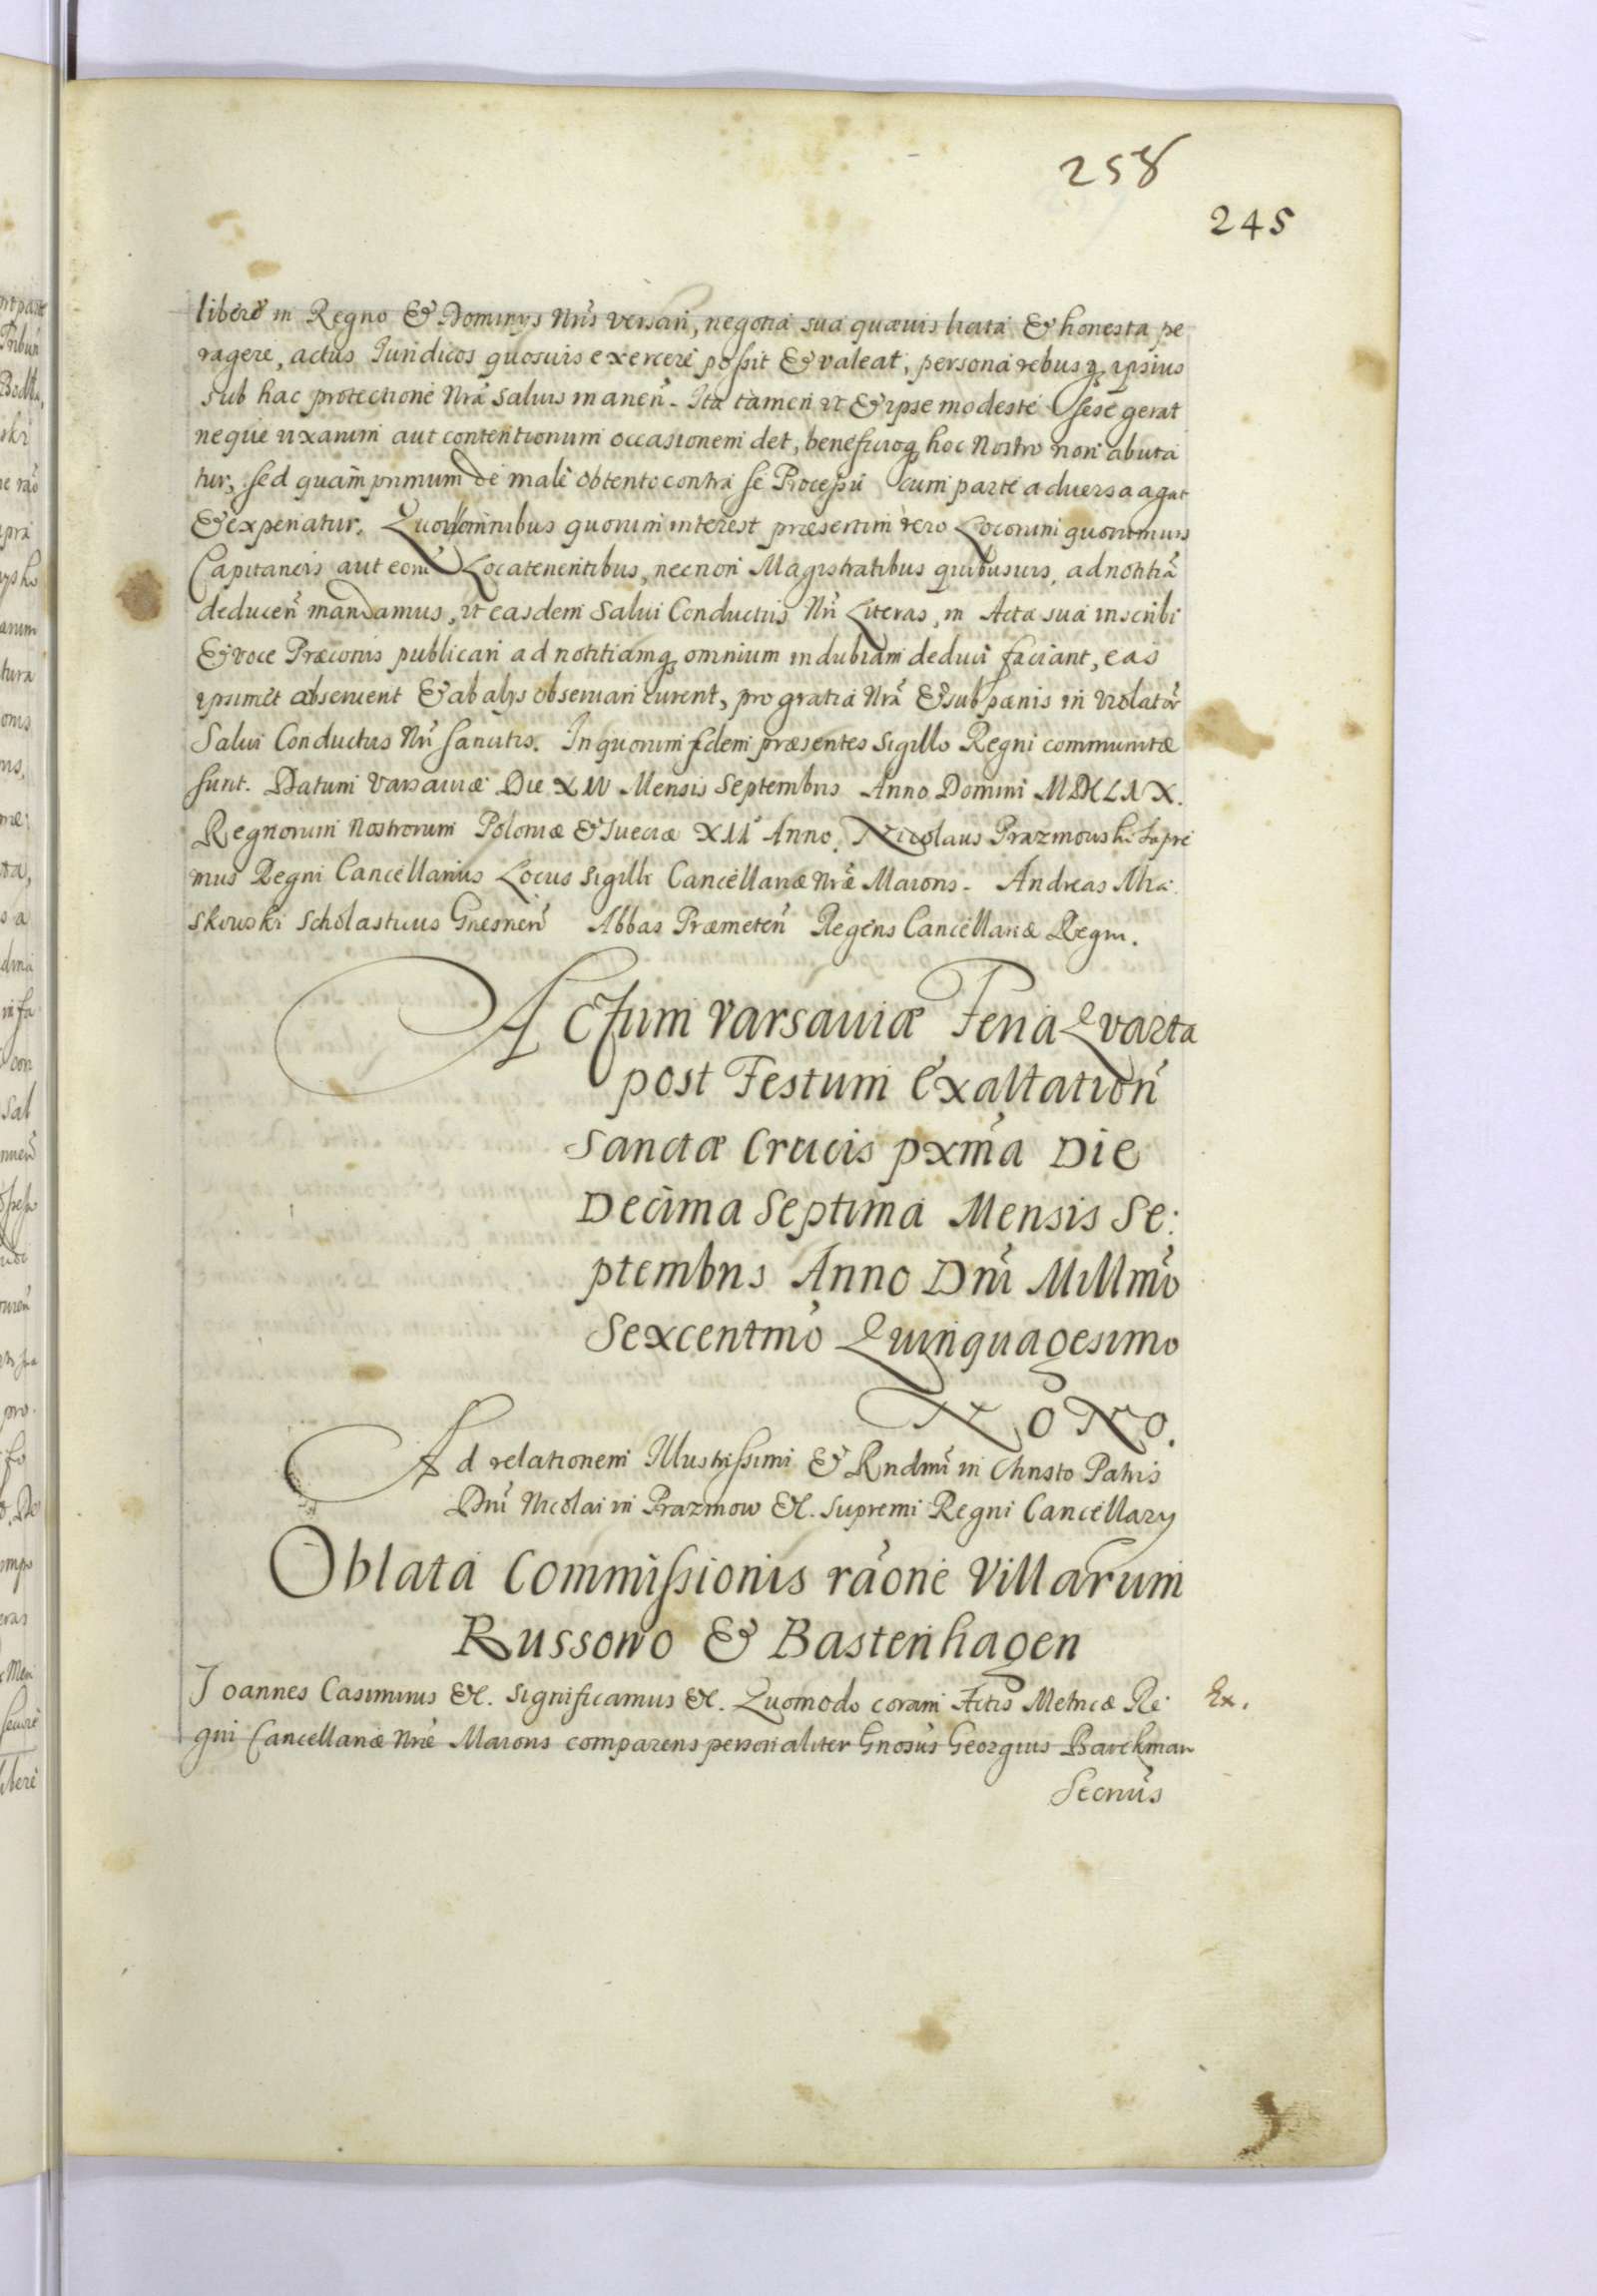 258
245
liberè in Regno & Dominys Nr̃is versari, negotia sua quæuis licita & honesta pe
ragere, actus Iuridicos quosuis exercere possit & valeat, persona rebusq. ipsius
sub hac protectione Nr̃a saluis manen̄. Ita tamen ut & ipse modestè sese gerat
neque rixarum aut contentionum occasionem det, beneficioq. hoc Nostro non abuta
tur, sed quàm primum de malè obtento contra se Processu cum parte aduersa agat
& experiatur. Quod omnibus quorum interest præsertim vero Locorum quorumuis
Capitaneis aut eorũ Locatenentibus, necnon Magistratibus quibusuis, ad notitiã
deducen̄ mandamus, ut easdem Salui Conductus Nr̃i Literas, in Acta sua inscribi
& voce Præconis publicari ad notitiamq. omnium indubiam deduci faciant, eas
ipsimet obseruent & ab alys obseruari curent, pro gratia Nr̃a & sub pænis in violatoȓ
Salui Conductus Nr̃i sancitis. In quorum fidem præsentes Sigillo Regni communitæ
sunt. Datum Varsauiæ Die XIV Mensis Septembris Anno Domini MDCLIX.
Regnorum Nostrorum Poloniæ & Sueciæ XII Anno. Nicolaus Prazmouski Supre
mus Regni Cancellarius Locus Sigilli Cancellariæ Nr̃æ Maioris. Andreas Mia
skouski Scholasticus Gnesnen̄ Abbas Præmeten̄ Regens Cancellariæ Regni.
ACtum Varsauiæ Feria Qvarta
post Festum Exaltation̄
Sanctæ Crucis pxm̃a Die
Decima Septima Mensis Se:
ptembris Anno Dnĩ Millm̃o
Sexcentm̃o Quinquagesimo
NoNo.
Ad relationem Illustrissimi & Rndmĩ in Christo Patris
Dnĩ Nicolai in Prazmow &c. Supremi Regni Cancellary
Oblata Commissionis rãone Villarum
Russowo & Bastenhagen
Ioannes Casimirus &c. Significamus &c. Quomodo coram Actis Metricæ Re
gni Cancellariæ Nr̃æ Maioris comparens personaliter Gnosus Georgius Barckman
Ex.
Secriũs